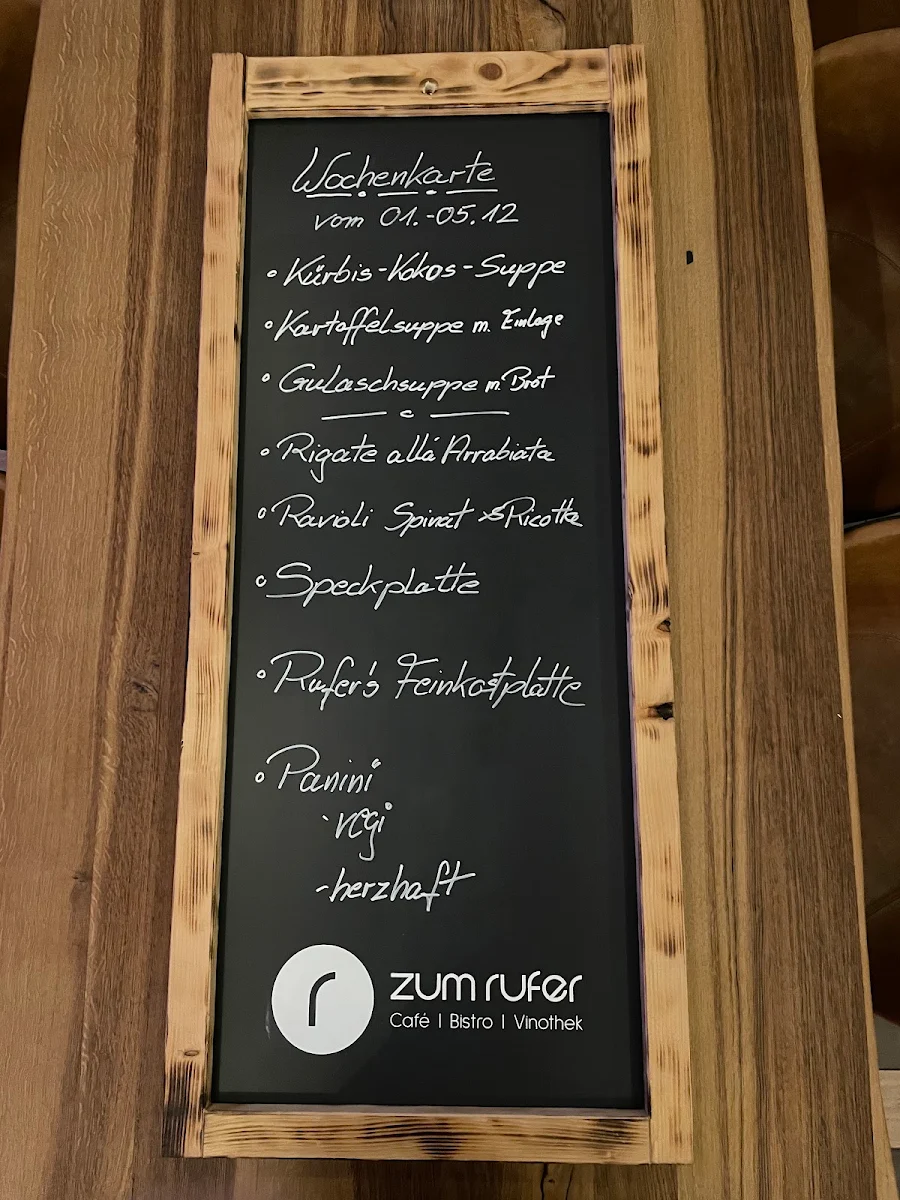 Wochenkarte
vom 01.-05.12
Kürbis-Kokos-Suppe
Kartoffelsuppe m. Einlage
Gulaschsuppe m. Brot
Rigate allá Arrabiata
Ravioli Spinat Ricotta
Speckplatte
Rufer's Feinkostplatte
Panini
- vegi
- herzhaft
r zum rufer
Café | Bistro | Vinothek